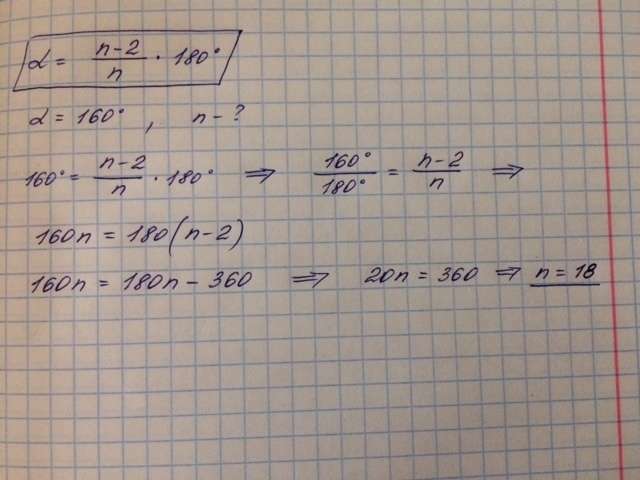 α = n-2/n · 180°
α = 160°, n - ?
160° = n-2/n · 180° ⇒ 160°/180° = n-2/n ⇒
160n = 180(n-2)
160n = 180n - 360 ⇒ 20n = 360 ⇒ n = 18